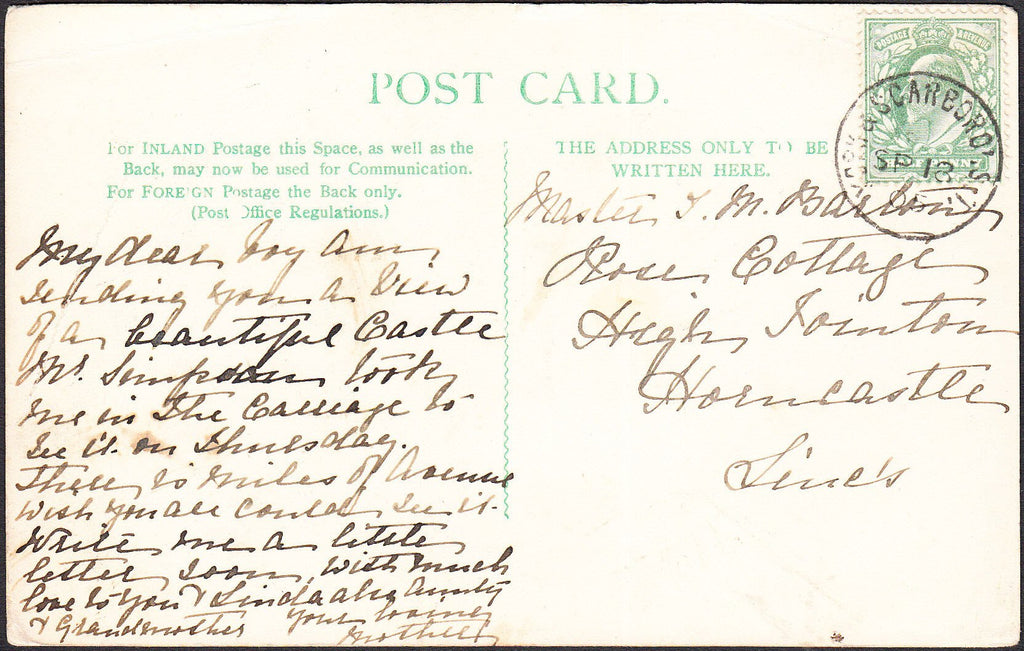 POST CARD.
For INLAND Postage this Space, as well as the
Back, may now be used for Communication.
For FOREIGN Postage the Back only.
(Post Office Regulations.)
THE ADDRESS ONLY TO BE
WRITTEN HERE.
POSTAGE REVENUE
PENNY
SCARBORO
SP 18
My dear boy Am
sending you a View
of a beautiful Castle
Mr. Simpson took
me in The Carriage to
see it on Thursday.
There is miles of Avenue
wish you all could see it.
Write me a little
letter soon, with much
love to you & Linda also Aunty
& Grandmother your loving
Mother
Master T. M. Barton
Rose Cottage
High Tointon
Horncastle
Linc's